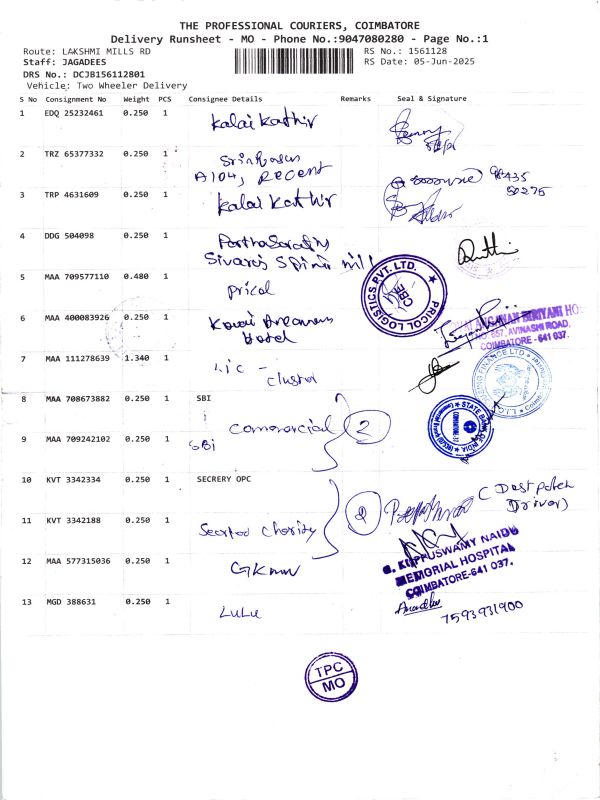 THE PROFESSIONAL COURIERS, COIMBATORE
Delivery Runsheet - MO - Phone No.:9047080280 - Page No.:1
Route: LAKSHMI MILLS RD
RS No.: 1561128
Staff: JAGADEES
RS Date: 05-Jun-2025
DRS No.: DCJB156112801
Vehicle: Two Wheeler Delivery
S No Consignment No Weight PCS Consignee Details Remarks Seal & Signature
1 EDQ 25232461 0.250 1 Kalai Kathir
2 TRZ 65377332 0.250 1
A104, RECENT
3 TRP 4631609 0.250 1 Kalai Kathir
98435
50275
4 DDG 504098 0.250 1 Parthasarathy
Sivaraj Spinn mill
5 MAA 709577110 0.480 1 Pricol
PRICOL LOGISTICS PVT. LTD.
CBE
6 MAA 400083926 0.250 1 Kovai
Hotel
BIRIYANI HO
NO. 657, AVINASHI ROAD,
COIMBATORE - 641 037.
7 MAA 111278639 1.340 1 LIC -
Cluster
FINANCE LTD
8 MAA 708673882 0.250 1 SBI
STATE BANK OF INDIA
9 MAA 709242102 0.250 1 SBI
Comercial 2
10 KVT 3342334 0.250 1 SECRERY OPC
2 (Dest patch
Driver)
11 KVT 3342188 0.250 1 Charity
12 MAA 577315036 0.250 1 GKNM
G. KUPPUSWAMY NAIDU
MEMORIAL HOSPITAL
COIMBATORE-641 037.
13 MGD 388631 0.250 1 LuLu
7593931900
TPC
MO